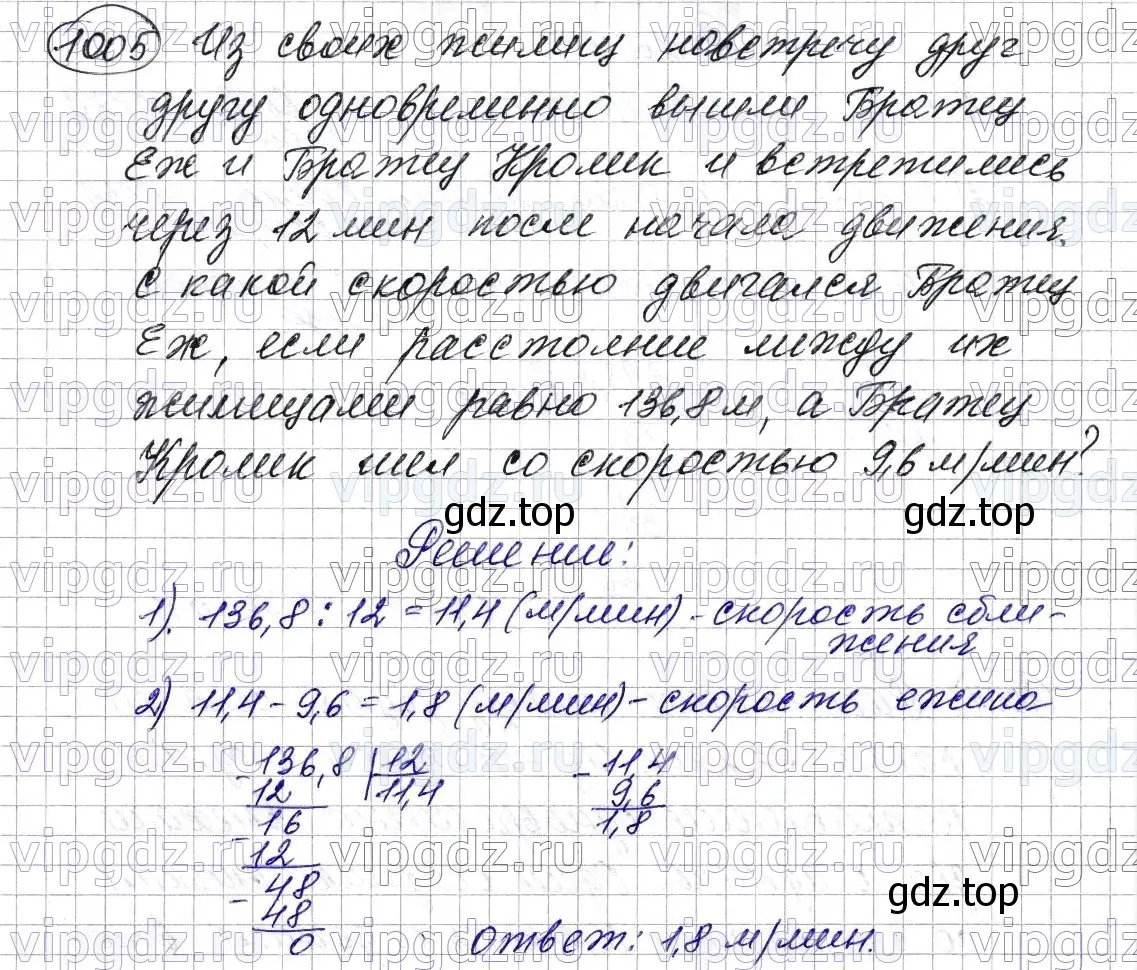 1005 Из своих жилищ навстречу друг
другу одновременно вышли Братец
Еж и Братец Кролик и встретились
через 12 мин после начала движения.
С какой скоростью двигался Братец
Еж, если расстояние между их
жилищами равно 136,8 м, а Братец
Кролик шел со скоростью 9,6 м/мин?
gdz.top gdz.top
Решение:
1). 136,8 : 12 = 11,4 (м/мин) - скорость сбли-
жения
2) 11,4 - 9,6 = 1,8 (м/мин) - скорость ежика
- 136,8 | 12 - 11,4
12 11,4 9,6
- 16 1,8
12
- 48
48
0
gdz.top
Ответ: 1,8 м/мин.
vipgdz.ru